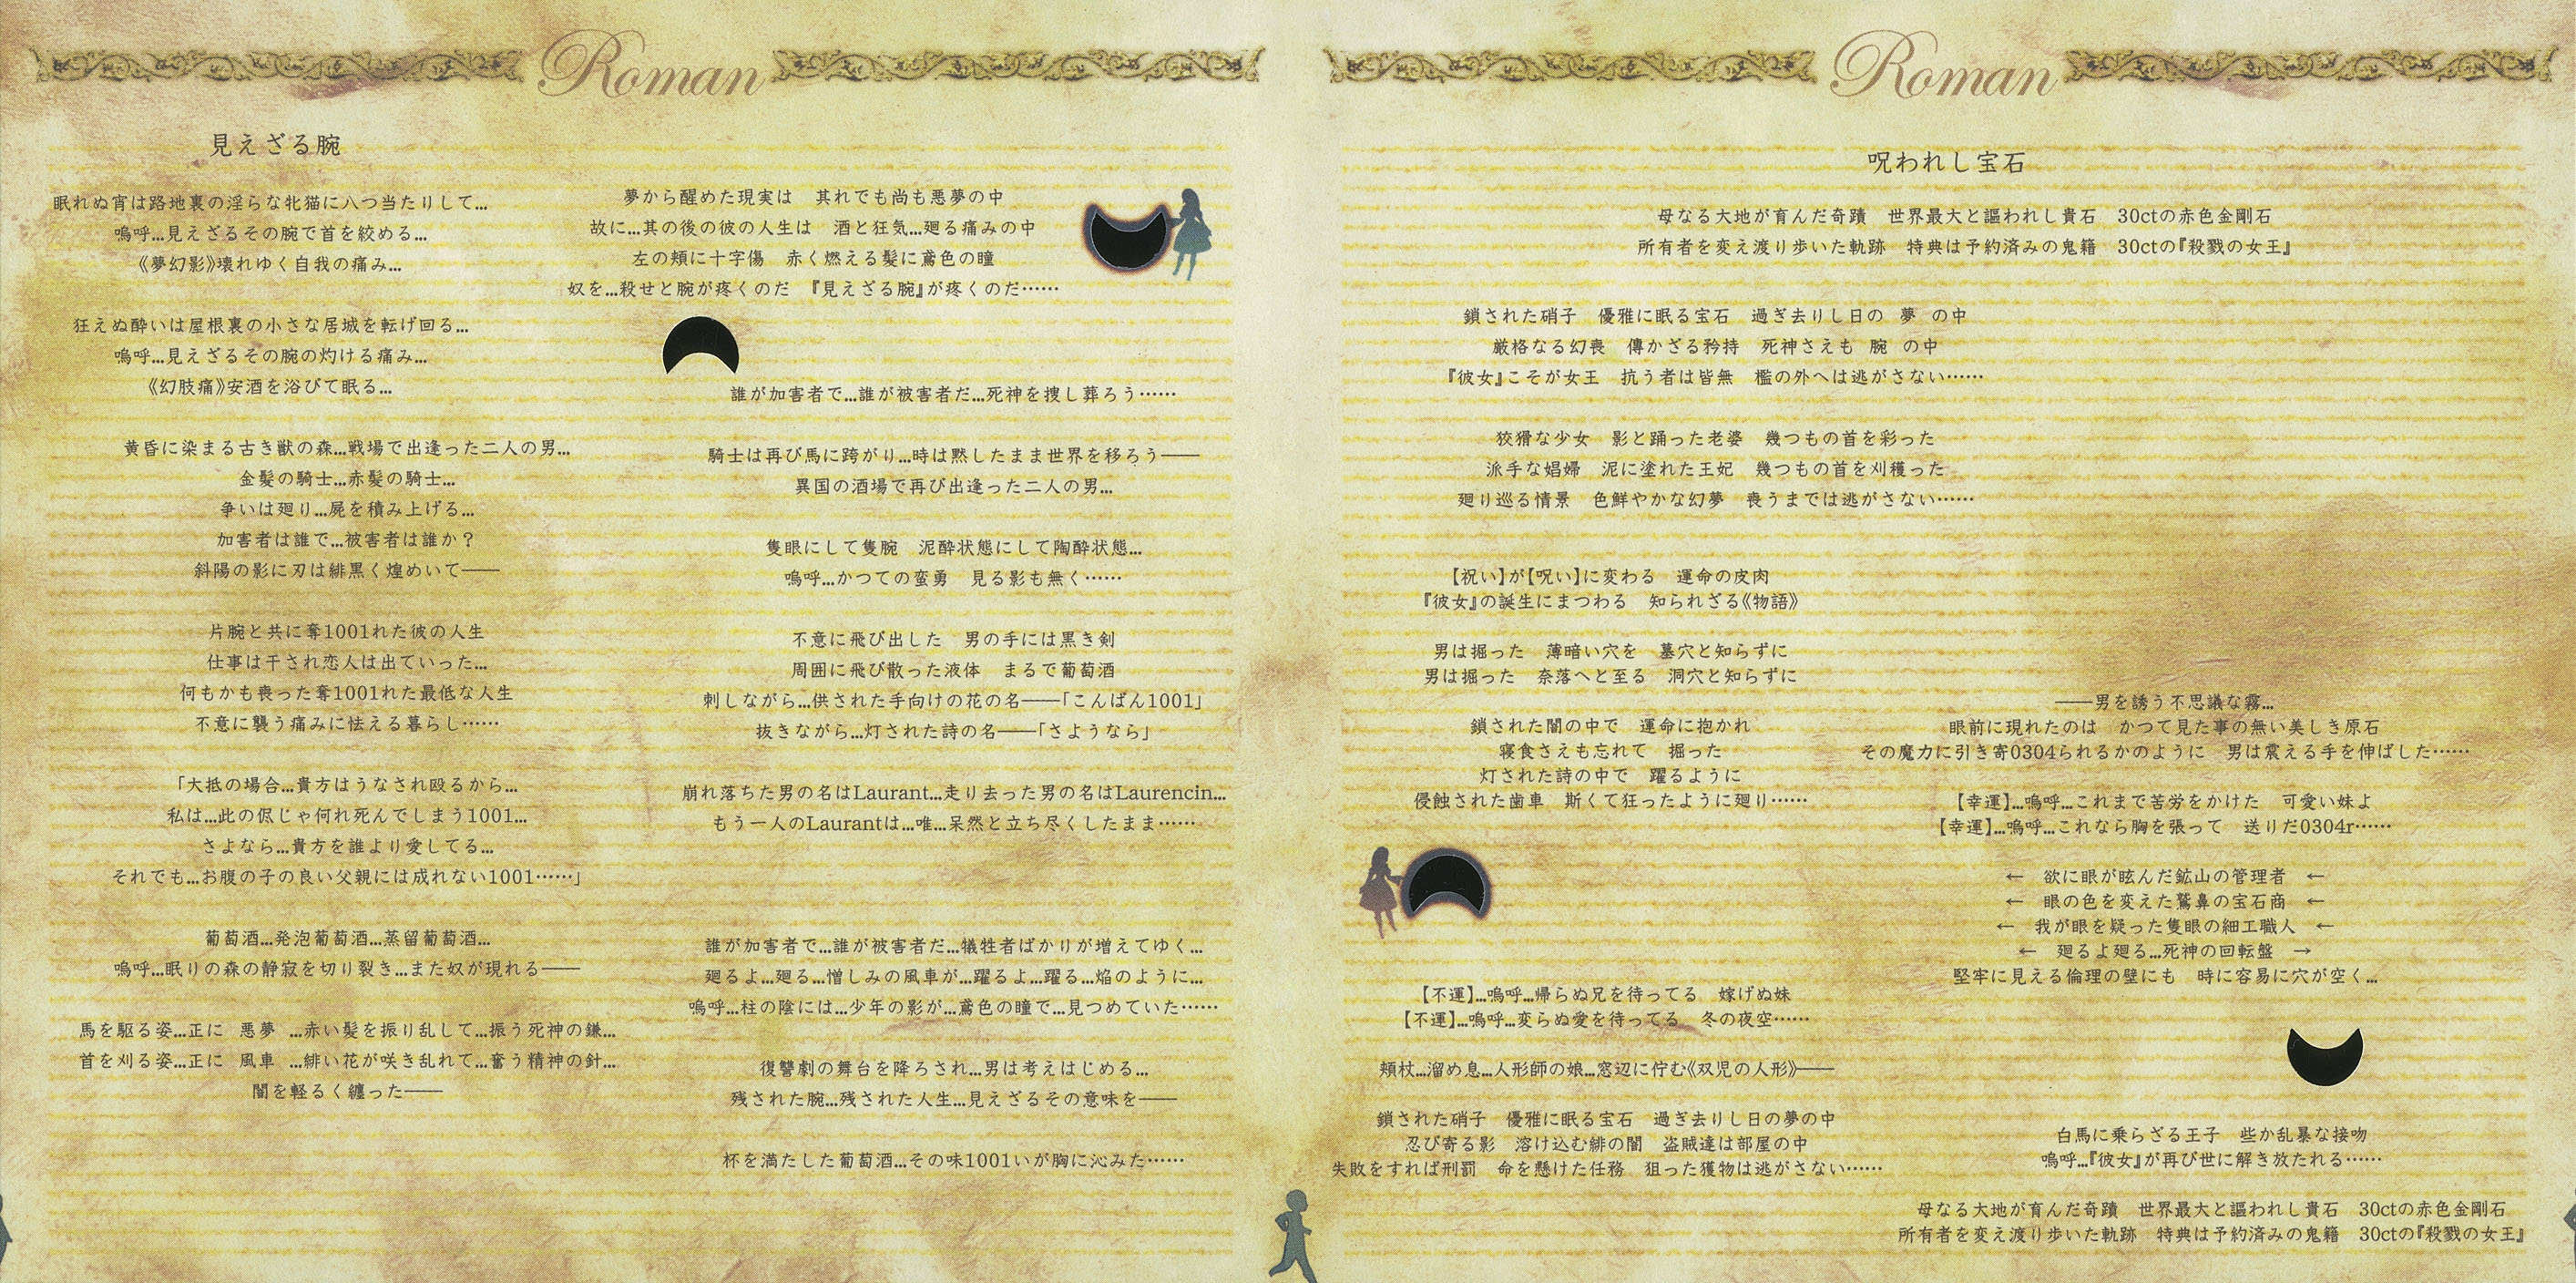 Roman
見えざる腕
眠れぬ宵は路地裏の淫らな牝猫に八つ当たりして…
嗚呼…見えざるその腕で首を絞める…
《夢幻影》壊れゆく自我の痛み…
狂えぬ酔いは屋根裏の小さな居城を転げ回る…
嗚呼…見えざるその腕の灼ける痛み…
《幻肢痛》安酒を浴びて眠る…
黄昏に染まる古き獣の森…戦場で出逢った二人の男…
金髪の騎士…赤髪の騎士…
争いは廻り…屍を積み上げる…
加害者は誰で…被害者は誰か？
斜陽の影に刃は緋黒く煌めいて──
片腕と共に奪1001れた彼の人生
仕事は干され恋人は出ていった…
何もかも喪った奪1001れた最低な人生
不意に襲う痛みに怯える暮らし……
「大抵の場合…貴方はうなされ殴るから…
私は…此の侭じゃ何れ死んでしまう1001…
さよなら…貴方を誰より愛してる…
それでも…お腹の子の良い父親には成れない1001……」
葡萄酒…発泡葡萄酒…蒸留葡萄酒…
嗚呼…眠りの森の静寂を切り裂き…また奴が現れる──
馬を駆る姿…正に　悪夢　…赤い髪を振り乱して…振う死神の鎌…
首を刈る姿…正に　風車　…緋い花が咲き乱れて…奮う精神の針…
闇を軽るく纏った──
夢から醒めた現実は　其れでも尚も悪夢の中
故に…其の後の彼の人生は　酒と狂気…廻る痛みの中
左の頬に十字傷　赤く燃える髪に鳶色の瞳
奴を…殺せと腕が疼くのだ　『見えざる腕』が疼くのだ……
誰が加害者で…誰が被害者だ…死神を捜し葬ろう……
騎士は再び馬に跨がり…時は黙したまま世界を移ろう──
異国の酒場で再び出逢った二人の男…
隻眼にして隻腕　泥酔状態にして陶酔状態…
嗚呼…かつての蛮勇　見る影も無く……
不意に飛び出した　男の手には黒き剣
周囲に飛び散った液体　まるで葡萄酒
刺しながら…供された手向けの花の名──「こんばん1001」
抜きながら…灯された詩の名──「さようなら」
崩れ落ちた男の名はLaurant…走り去った男の名はLaurencin…
もう一人のLaurantは…唯…呆然と立ち尽くしたまま……
誰が加害者で…誰が被害者だ…犠牲者ばかりが増えてゆく…
廻るよ…廻る…憎しみの風車が…躍るよ…躍る…焔のように…
嗚呼…柱の陰には…少年の影が…鳶色の瞳で…見つめていた……
復讐劇の舞台を降ろされ…男は考えはじめる…
残された腕…残された人生…見えざるその意味を──
杯を満たした葡萄酒…その味1001いが胸に沁みた……
Roman
呪われし宝石
母なる大地が育んだ奇蹟　世界最大と謳われし貴石　30ctの赤色金剛石
所有者を変え渡り歩いた軌跡　特典は予約済みの鬼籍　30ctの『殺戮の女王』
鎖された硝子　優雅に眠る宝石　過ぎ去りし日の　夢　の中
厳格なる幻喪　傳かざる矜持　死神さえも　腕　の中
『彼女』こそが女王　抗う者は皆無　檻の外へは逃がさない……
狡猾な少女　影と踊った老婆　幾つもの首を彩った
派手な娼婦　泥に塗れた王妃　幾つもの首を刈穫った
廻り巡る情景　色鮮やかな幻夢　喪うまでは逃がさない……
【祝い】が【呪い】に変わる　運命の皮肉
『彼女』の誕生にまつわる　知られざる《物語》
男は掘った　薄暗い穴を　墓穴と知らずに
男は掘った　奈落へと至る　洞穴と知らずに
鎖された闇の中で　運命に抱かれ
寝食さえも忘れて　掘った
灯された詩の中で　躍るように
侵蝕された歯車　斯くて狂ったように廻り……
──男を誘う不思議な霧…
眼前に現れたのは　かつて見た事の無い美しき原石
その魔力に引き寄0304られるかのように　男は震える手を伸ばした……
【幸運】…嗚呼…これまで苦労をかけた　可愛い妹よ
【幸運】…嗚呼…これなら胸を張って　送りだ0304r……
←　欲に眼が眩んだ鉱山の管理者　←
←　眼の色を変えた鷲鼻の宝石商　←
←　我が眼を疑った隻眼の細工職人　←
←　廻るよ廻る…死神の回転盤　→
堅牢に見える倫理の壁にも　時に容易に穴が空く…
【不運】…嗚呼…帰らぬ兄を待ってる　嫁げぬ妹
【不運】…嗚呼…変らぬ愛を待ってる　冬の夜空……
頬杖…溜め息…人形師の娘…窓辺に佇む《双児の人形》──
鎖された硝子　優雅に眠る宝石　過ぎ去りし日の夢の中
忍び寄る影　溶け込む緋の闇　盗賊達は部屋の中
失敗をすれば刑罰　命を懸けた任務　狙った獲物は逃がさない……
白馬に乗らざる王子　些か乱暴な接吻
嗚呼…『彼女』が再び世に解き放たれる……
母なる大地が育んだ奇蹟　世界最大と謳われし貴石　30ctの赤色金剛石
所有者を変え渡り歩いた軌跡　特典は予約済みの鬼籍　30ctの『殺戮の女王』